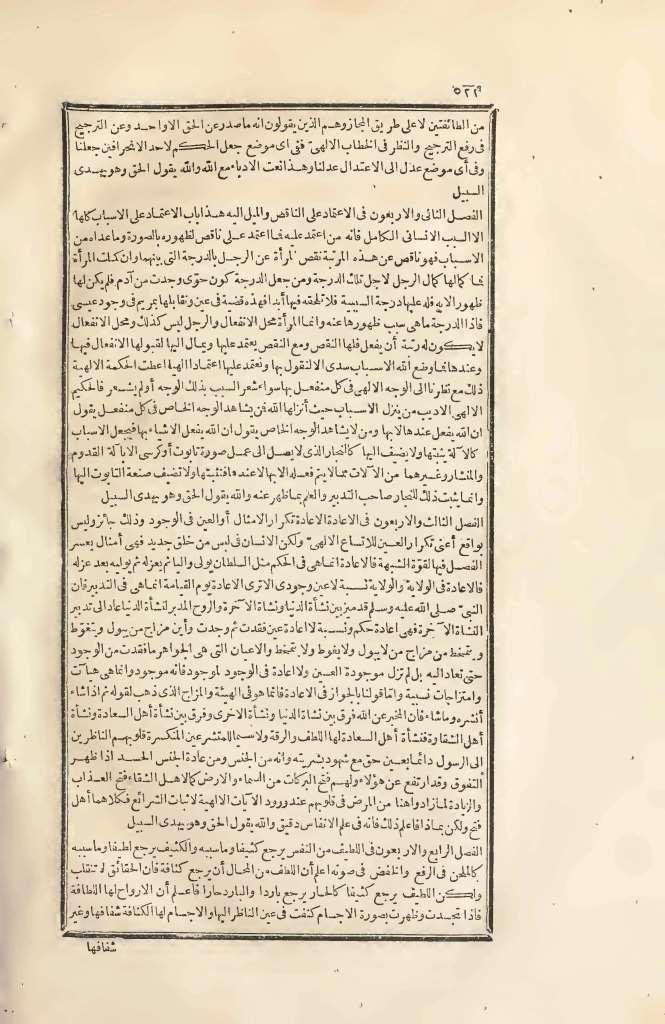 ٥٢٢
من الطائفتين لا على طريق المجاز وهم الذين يقولون انه ما صدر عن الحق الا واحد وعن الترجيح
فى رفع الترجيح والنظر فى الخطاب الالهىّ ففى اى موضع جعل الحكم لاحد الانحرافين جعلنا
وفى أى موضع عدل الى الاعتدال عدلنا وهذا نعت الادباء مع الله والله يقول الحق وهو يهدى
السبيل
الفصل الثانى والاربعون فى الاعتماد على الناقص والميل اليه هذا باب الاعتماد على الاسباب كلها
الا السبب الانسانى الكامل فانه من اعتمد عليه فما اعتمد على ناقص لظهوره بالصورة وما عداه من
الاسباب فهو ناقص عن هذه المرتبة نقص المرأة عن الرجل بالدرجة التى بينهما وان كملت المرأة
فما كمالها كمال الرجل لاجل تلك الدرجة ومن جعل الدرجة كون حوّى وجدت من آدم فلم يكن لها
ظهور الا به فله عليها درجة السببية فلا تلحقه فيها أبدا فهذه قضية فى عين ونقابلها بمريم فى وجود عيسى
فاذا الدرجة ما هى سبب ظهورها عنه وانما المرأة محل الانفعال والرجل ليس كذلك ومحل الانفعال
لا يكون له رتبة أن يفعل فلها النقص ومع النقص يعتمد عليها ويمال اليها لقبولها الانفعال فيها
وعندها فما وضع الله الاسباب سدى الا لنقول بها ونعتمد عليها اعتمادا الهيا اعطت الحكمة الالهية
ذلك مع نظرنا الى الوجه الالهى فى كل منفعل بها سواء شعر السبب بذلك الوجه أو لم يشعر فالحكيم
الالهى الاديب من ينزل الاسباب حيث أنزلها الله فمن يشاهد الوجه الخاص فى كل منفعل يقول
ان الله يفعل عندها لا بها ومن لا يشاهد الوجه الخاص يقول ان الله يفعل الاشياء بها فيجعل الاسباب
كالآلة يثبتها ولا يضيف اليها كالنجار الذى لا يصل الى عمل صورة تابوت أو كرسى الا بآلة القدوم
والمنشار وغيرهما من الآلات مما لا يتم فعله الا بها لا عندها فنثبتها ولا تضيف صنعة التابوت اليها
وانما يثبت ذلك للنجار صاحب التدبير والعلم بما ظهر عنه والله يقول الحق وهو يهدى السبيل
الفصل الثالث والاربعون فى الاعادة الاعادة تكرار الامثال أو العين فى الوجود وذلك جائز وليس
بواقع أعنى تكرار العين للاتساع الالهىّ ولكن الانسان فى لبس من خلق جديد فهى أمثال يعسر
الفصل فيها لقوّة الشبه فالاعادة انما هى فى الحكم مثل السلطان يولى واليا ثم يعزله ثم يوليه بعد عزله
فالاعادة فى الولاية والولاية نسبة لا عين وجودى الا ترى الاعادة يوم القيامة انما هى فى التدبير فان
النبىّ صلى الله عليه وسلم قد ميز بين نشأة الدنيا ونشأة الآخرة والروح المدبر لنشأة الدنيا عاد الى تدبير
النشأة الآخرة فهى اعادة حكم ونسبة لا اعادة عين فقدت ثم وجدت وأين مزاج من يبول ويتغوّط
ويتمخط من مزاج من لا يبول ولا يغوط ولا يتمخط والاعيان التى هى الجواهر ما فقدت من الوجود
حتى تعاد اليه بل لم تزل موجودة العين ولا اعادة فى الوجود لموجود فانه موجود وانما هى هيآت
وامتزاجات نسبية واما قولنا بالجواز فى الاعادة فانما هو فى الهيئة والمزاج الذى ذهب لقوله ثم اذا شاء
أنشره وما شاء فان المخبر عن الله فرق بين نشاة الدنيا ونشأة الاخرى وفرق بين نشأة أهل السعادة ونشأة
أهل الشقاوة فنشأة أهل السعادة لها اللطف والرقة ولا سيما للمتشرعين المنكسرة قلوبهم الناظرين
الى الرسول دائما بعين حق مع شهود بشريته وانه من الجنس ومن عادة الجنس الحسد اذا ظهر
التفوق وقد ارتفع عن هؤلاء ولهم فتح البركات من السماء والارض كما لاهل الشقاء فتح العذاب
والزيادة لما زادوا هنا من المرض فى قلوبهم عند ورود الآيات الالهية لاثبات الشرائع فكلاهما أهل
فتح ولكن بماذا فاعلم ذلك فانه فى علم الانفاس دقيق والله يقول الحق وهو يهدى السبيل
الفصل الرابع والاربعون فى اللطيف من النفس يرجع كثيفا وما سببه والكثيف يرجع لطيفا وما سببه
كاللحن فى الرفع والخفض فى صوته اعلم أن اللطف من المحال أن يرجع كثافة فان الحقائق لا تنقلب
ولكن اللطيف يرجع كثيفا كالحار يرجع باردا والبارد حارا فاعلم أن الارواح لها اللطافة
فاذا تجسدت وظهرت بصورة الاجسام كثفت فى عين الناظر اليها والاجسام لها الكثافة شفافها وغير
شفافها